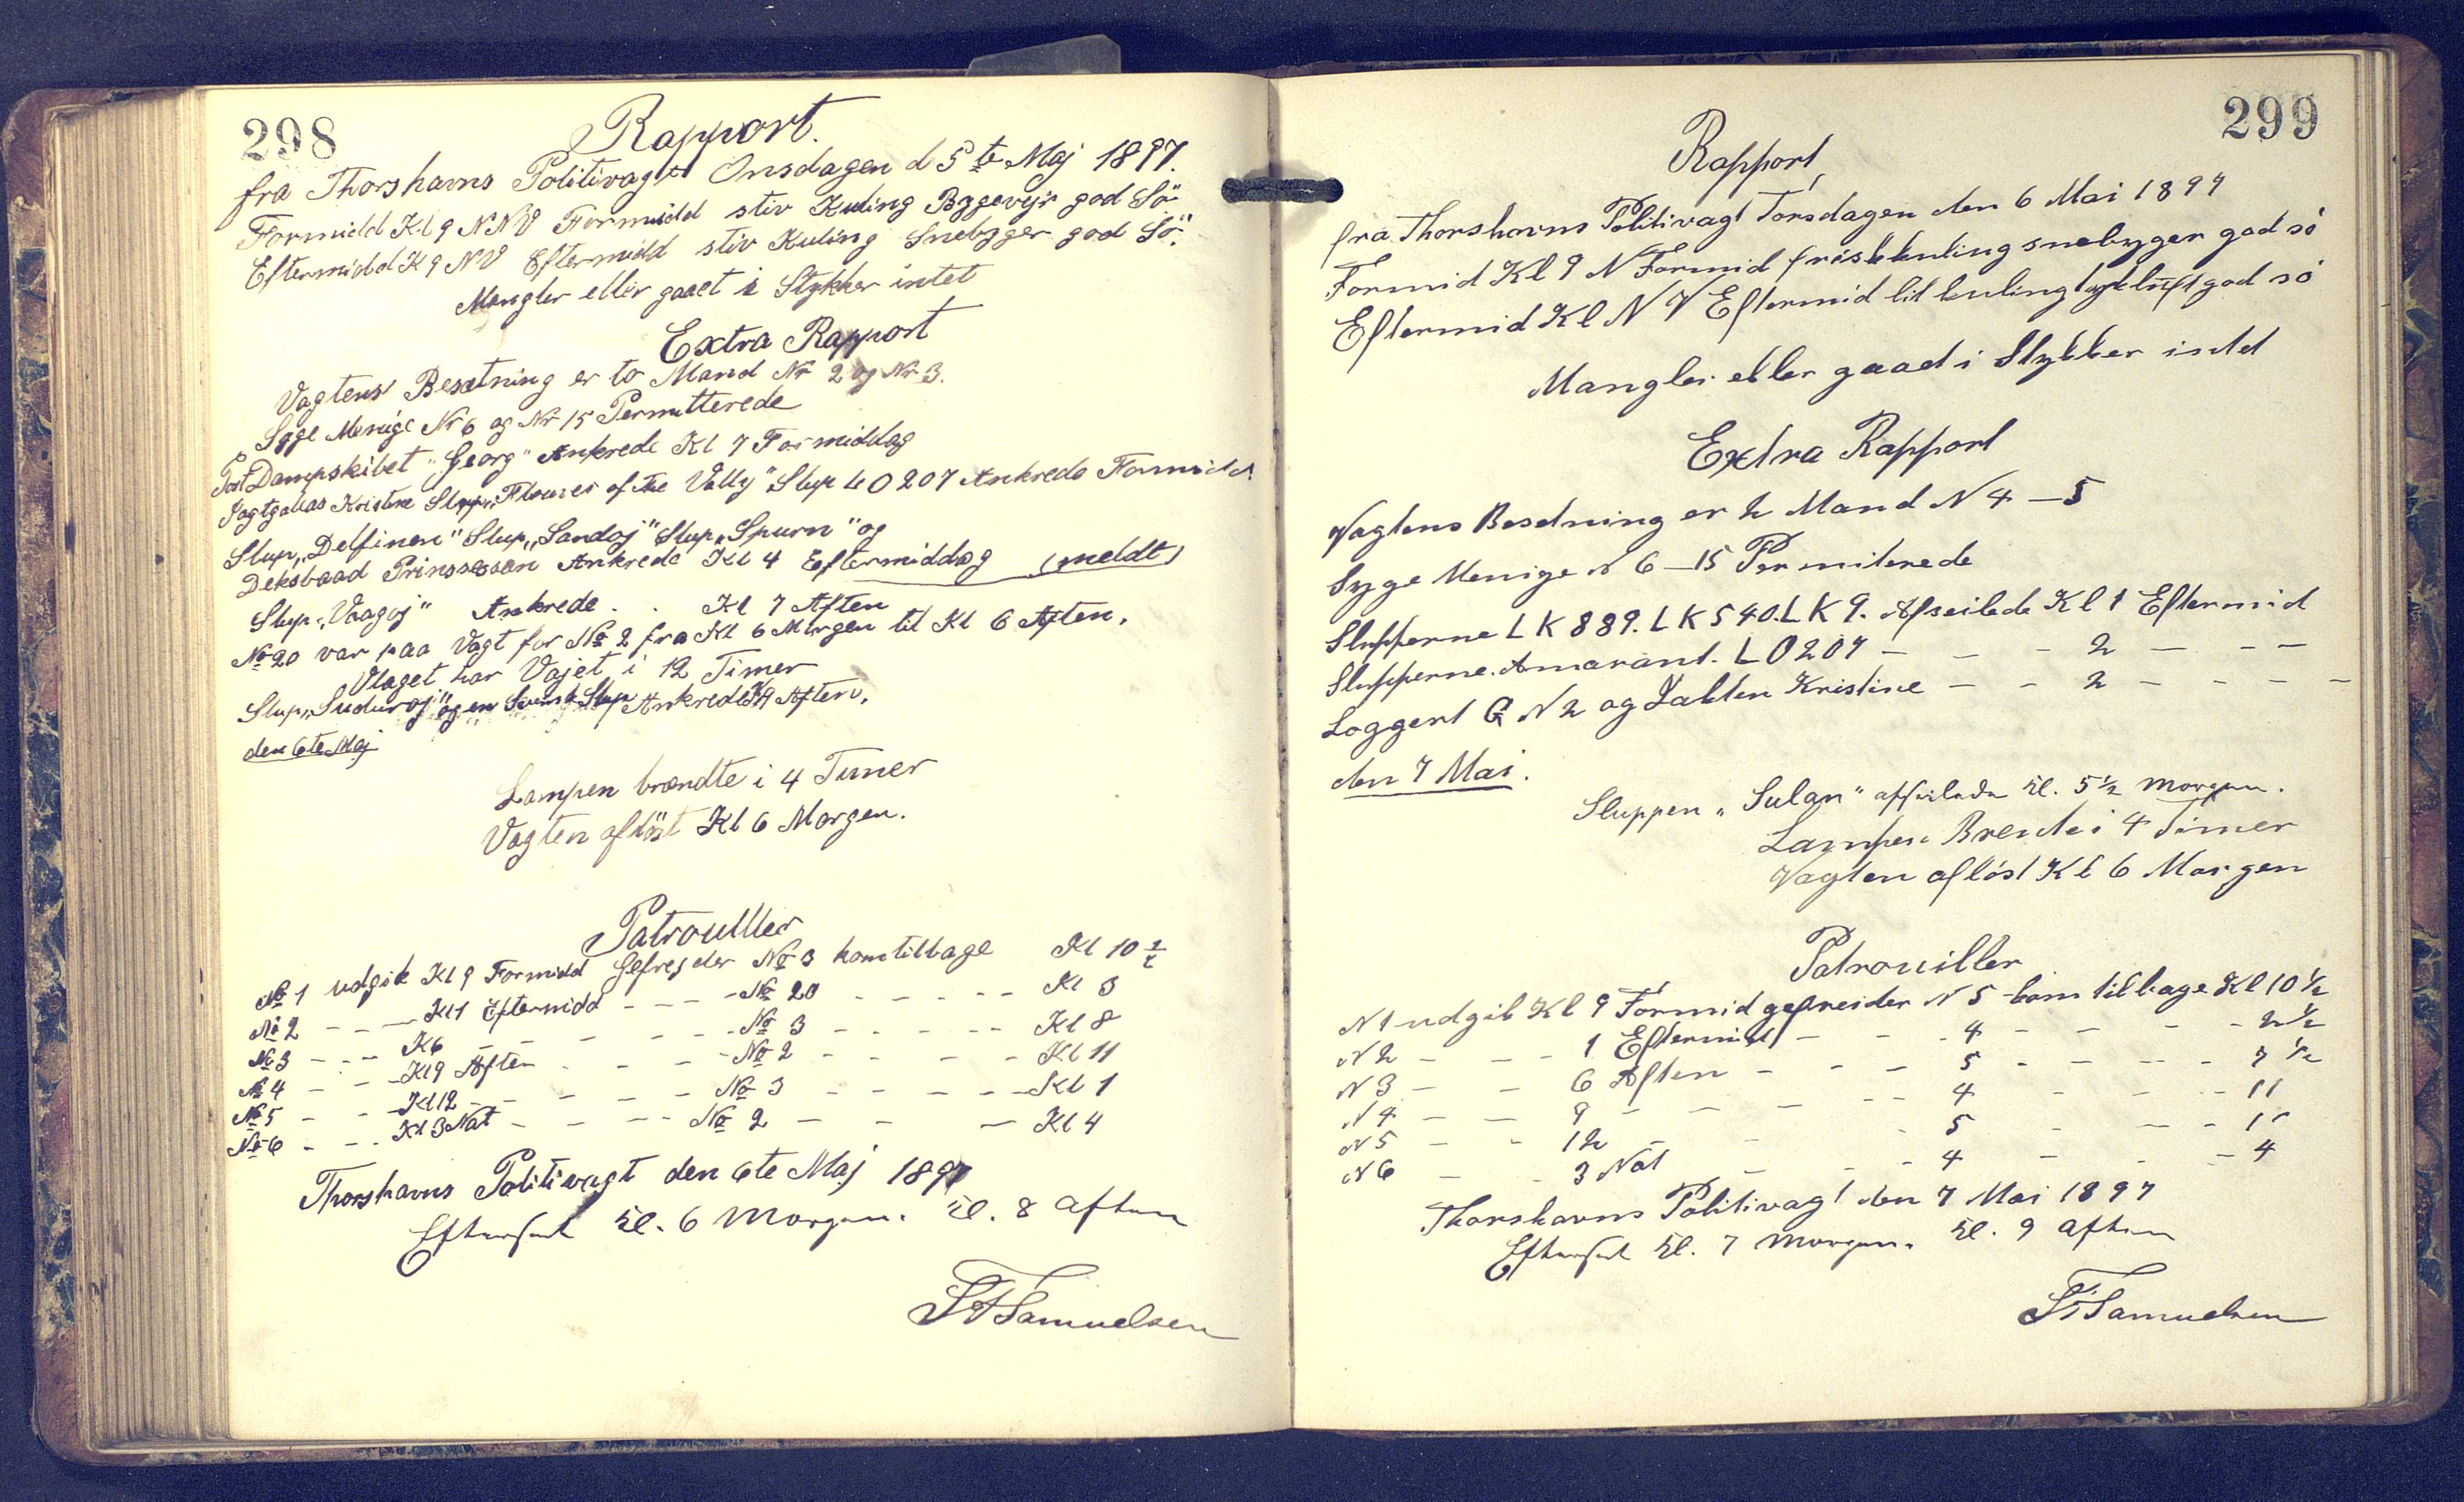 298
Rapport.
fra Thorshavns Politivagt Onsdagen d 5te Maj 1897.
Formidd Kl 9 NNV Formidd stiv Kuling Byggevejr god Sö
Eftermidd K 9 NV Eftermidd stiv Kuling Snebyger god Sö.
Mangler eller gaaet i Stykker intet
Extra Rapport
Vagtens Besætning er to Mand Nr 2 og Nr 3.
Syge Menige Nr 6 og Nr 15 Permitterede
Post Dampskibet "Georg" Ankrede Kl 7 Formiddag
Jagtgalias Kristine Slup „Flower of the Vally" Slup LO 207 Ankrede Formidd.
Slup „Delfinen" Slup „Sandoj" Slup „Spurn" og
Deksbaad Prinssessen Ankrede Kl 4 Eftermiddag (meldt)
Slup „Vaagoj" Ankrede . . Kl 7 Aften
No 20 var paa Vagt for No 2 fra Kl 6 Morgen til Kl 6 Aften.
Vlaget har Vajet i 12 Timer
Slup „Suduroj" og en Svensk Slup Ankrede Kl 9 Aften.
den 6te Maj
Lampen brændte i 4 Timer
Vagten aflöst Kl 6 Morgen.
Patrouller
No 1 udgik Kl 9 Formidd Gefrejder No 3 kom tilbage Kl 10 1/2
No 2 - - - Kl 1 Eftermidd - - - - No 20 - - - - - Kl 3
No 3 - - - K 6 - - - - - - No 3 - - - - - Kl 8
No 4 - - - Kl 9 Aften - - - No 2 - - - - Kl 11
No 5 - - - Kl 12 - - - - - No 3 - - - - - Kl 1
No 6 - - - Kl 3 Nat - - - - No 2 - - - Kl 4
Thorshavns Politivagt den 6te Maj 1897
Efterseet Kl. 6 Morgen. Kl. 8 Aften
Samuelsen
299
Rapport
fra Thorshavns Politivagt Torsdagen den 6 Mai 1897
Formid Kl 9 N Formid friskkuling snebyger god só
Eftermid Kl N V Eftermid lit kuling god só
Mangler eller gaad i Stykker indd
Extra Rapport
Vagtens Besetning er 2 Mand N 4 - 5
Syge Menige N 6 - 15 Permiterede
Slupperne LK 889. LK 540. LK 9. Afseilede Kl 1 Eftermid
Slupperne. Amarant. LO 207 - - - 2 - - -
Loggert G N 2 og Jakten Kristine - - 2 - - - -
den 7 Mai.
Sluppen „Sulan" afseilede Kl. 5 1/2 Morgen.
Lampen Brende i 4 Timer
Vagten aflóst Kl 6 Morgen
Patrouiller
N 1 udgik Kl 9 Formid gefreider N 5 kom tilbage Kl 10 1/2
N 2 - - - 1 Eftermid - - - 4 - - - - 2 1/2
N 3 - - 6 Aften - - - 5 - - - - 7 1/2
N 4 - - 9 - - - - - 4 - - - 11
N 5 - - 12 - - - 5 - - - 1
N 6 - - 3 Nat - - - 4 - - - 4
Thorshavns Politivagt den 7 Mai 1897
Efterseet Kl. 7 Morgen. Kl. 9 Aften
Samuelsen